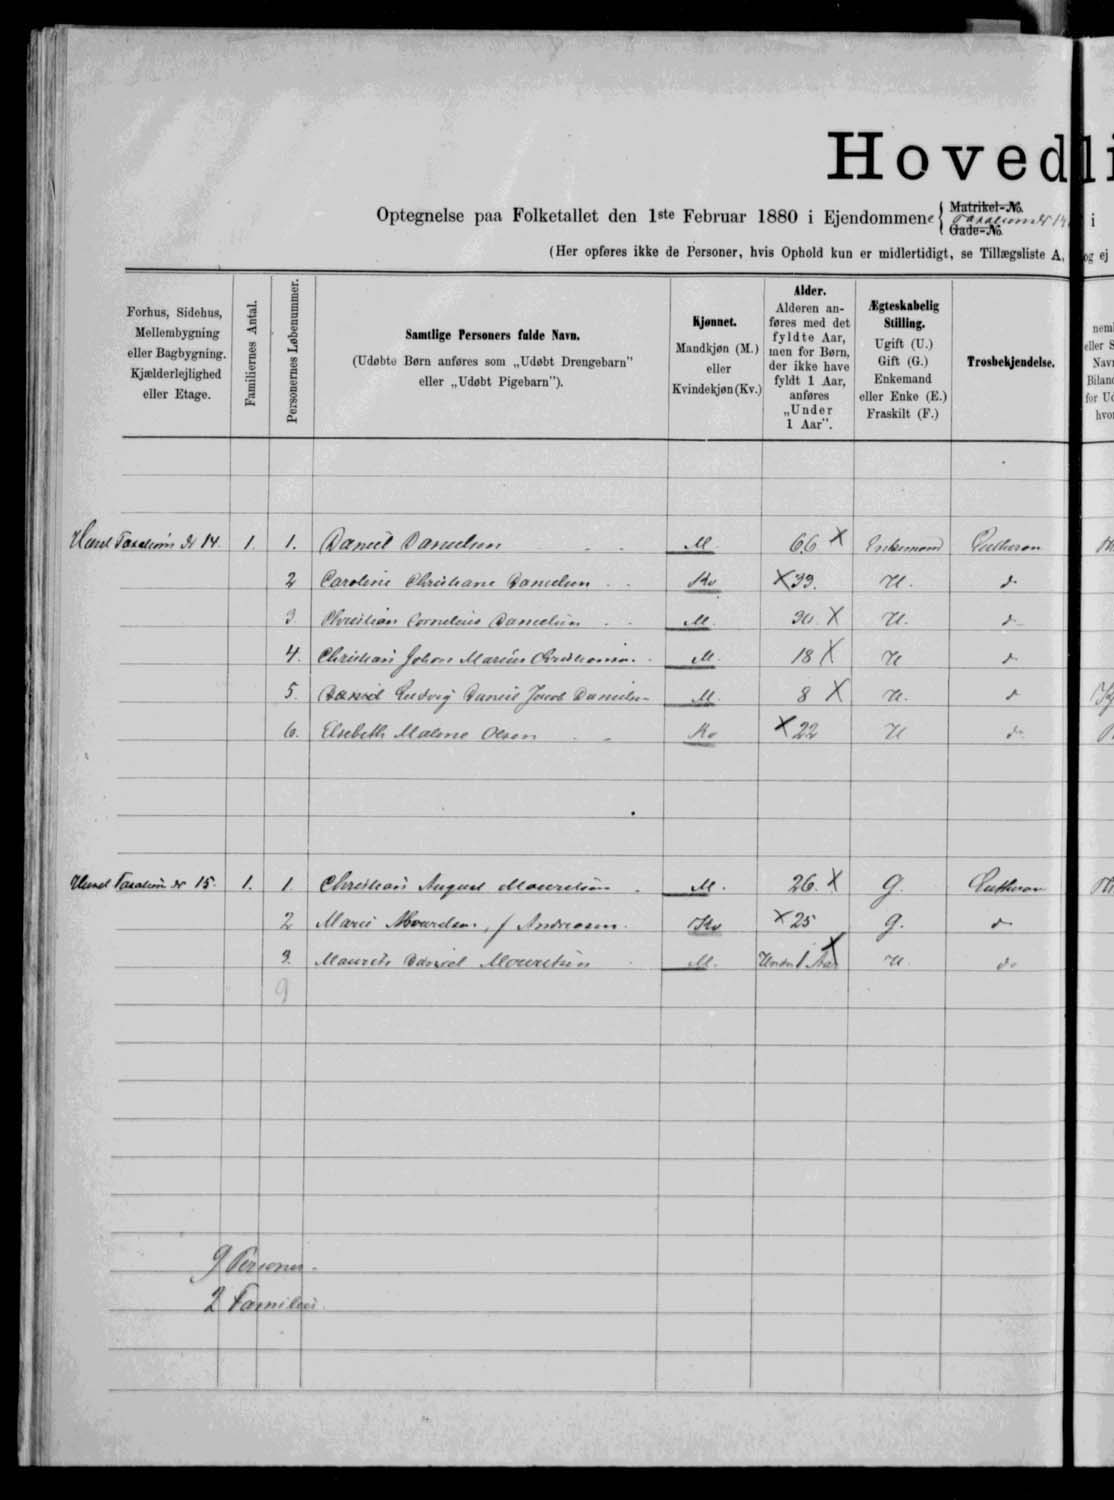 Hovedli
Optegnelse paa Folketallet den 1ste Februar 1880 i Ejendommene { Matrikel-No. Gade-No. i
(Her opføres ikke de Personer, hvis Ophold kun er midlertidigt, se Tillægsliste A, og ej
Forhus, Sidehus, Mellembygning eller Bagbygning. Kjælderlejlighed eller Etage.
Familiernes Antal.
Personernes Løbenummer.
Samtlige Personers fulde Navn.
(Udøbte Børn anføres som „Udøbt Drengebarn" eller „Udøbt Pigebarn").
Kjønnet.
Mandkjøn (M.) eller Kvindekjøn (Kv.)
Alder.
Alderen anføres med det fyldte Aar, men for Børn, der ikke have fyldt 1 Aar, anføres „Under 1 Aar".
Ægteskabelig Stilling.
Ugift (U.) Gift (G.) Enkemand eller Enke (E.) Fraskilt (F.)
Trosbekjendelse.
Huset Taxations Nr 14. 1. 1. Daniel Danielsen M. 66 X Enkemand Lutheran
2 Caroline Christiane Danielsen Kv X 33. U. do
3. Christian Cornelius Danielsen M. 30 X U. do
4. Christian Johan Marius Christiansen M. 18 X U do
5. Daniel Ludvig Daniel Jacob Danielsen M. 8 X U. do
6. Elsebeth Malene Olsen Kv X 22 U do
Huset Taxations Nr 15. 1. 1 Christian August Mouritsen M. 26. X G. Lutheran
2 Marie Mouridsen, f Andreasen Kv X 25 G. do
3. Maurits Daniel Mouritsen M. Under 1 Aar X U. do
9
9 Personer.
2 Familier.